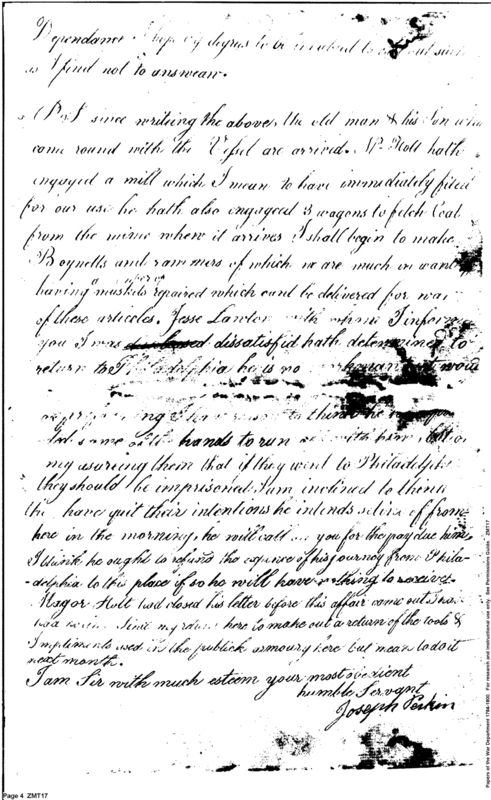 Dependance I hope degree to be
as I find not to answear.
P.S. since writing the above, the old man & his Son who
came round with the Vessel are arrived. Mr. Holt hath
engaged a mill which I mean to have immediately fited
for our use he hath also engaged 3 wagons to fetch Coal
from the mine when it arrives I shall begin to make
Boynetts and rammers of which we are much in want
having muskits repaired which cant be delivered for wa
of these articles. Jesse Lawton with whome I inform
you I was dissatisfid hath determined to
return to Philadelphia he is no workman
to think he
some of the hands to run with him but on
my asureing them that if they went to Philadelph
they should be imprisoned. I am inclined to think
the have quit their intentions he intends seting of from
here in the morning, he will call on you for the pay due him
I think he ought to refund the expence of his journey from Phila-
-delphia to this place if so he will have nothing to receive.
Magor Holt had closed his letter before this affair came out I
had my here to make out a return of the tools &
Impliments used in the publick armoury here but mean to do it
next month.
I am Sir with much esteem your most obedient
humble Servant
Joseph Perkin
Page 4 ZMT17
Papers of the War Department 1784-1800. For research and instructional use only. See Permissions Guide. ZMT17